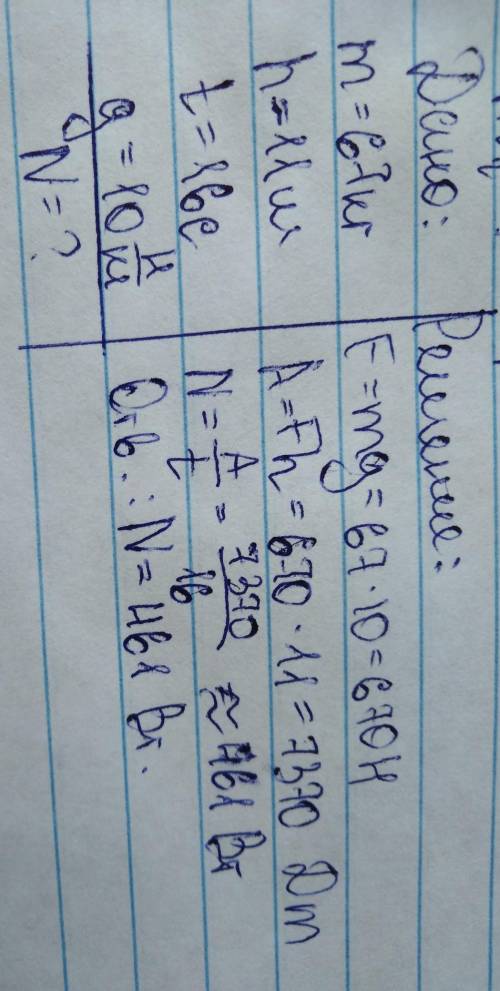 Дано:
m = 67 кг
h = 11 м
t = 16 с
g = 10 Н/кг
N = ?
Решение:
F = mg = 67 · 10 = 670 Н
A = Fh = 670 · 11 = 7370 Дж
N = A/t = 7370/16 ≈ 461 Вт
Отв.: N = 461 Вт.